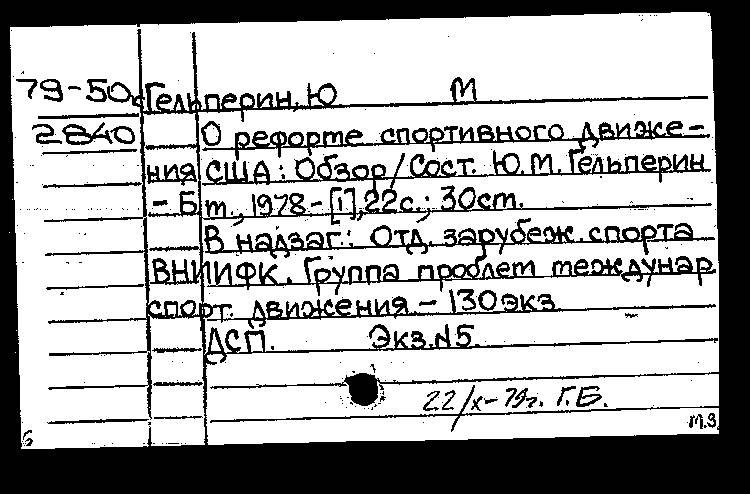 79-50 Гельперин, Ю М
2840 О реформе спортивного движе-
ния США: Обзор/Сост. Ю.М. Гельперин
- Б м., 1978 - [1], 22 с.; 30 см.
В надзаг.: Отд. зарубеж. спорта
ВНИИФК. Группа проблем междунар
спорт. движения. - 130 экз
ДСП. Экз. №5.
22/X-79г. Г.Б.
м.з.
6